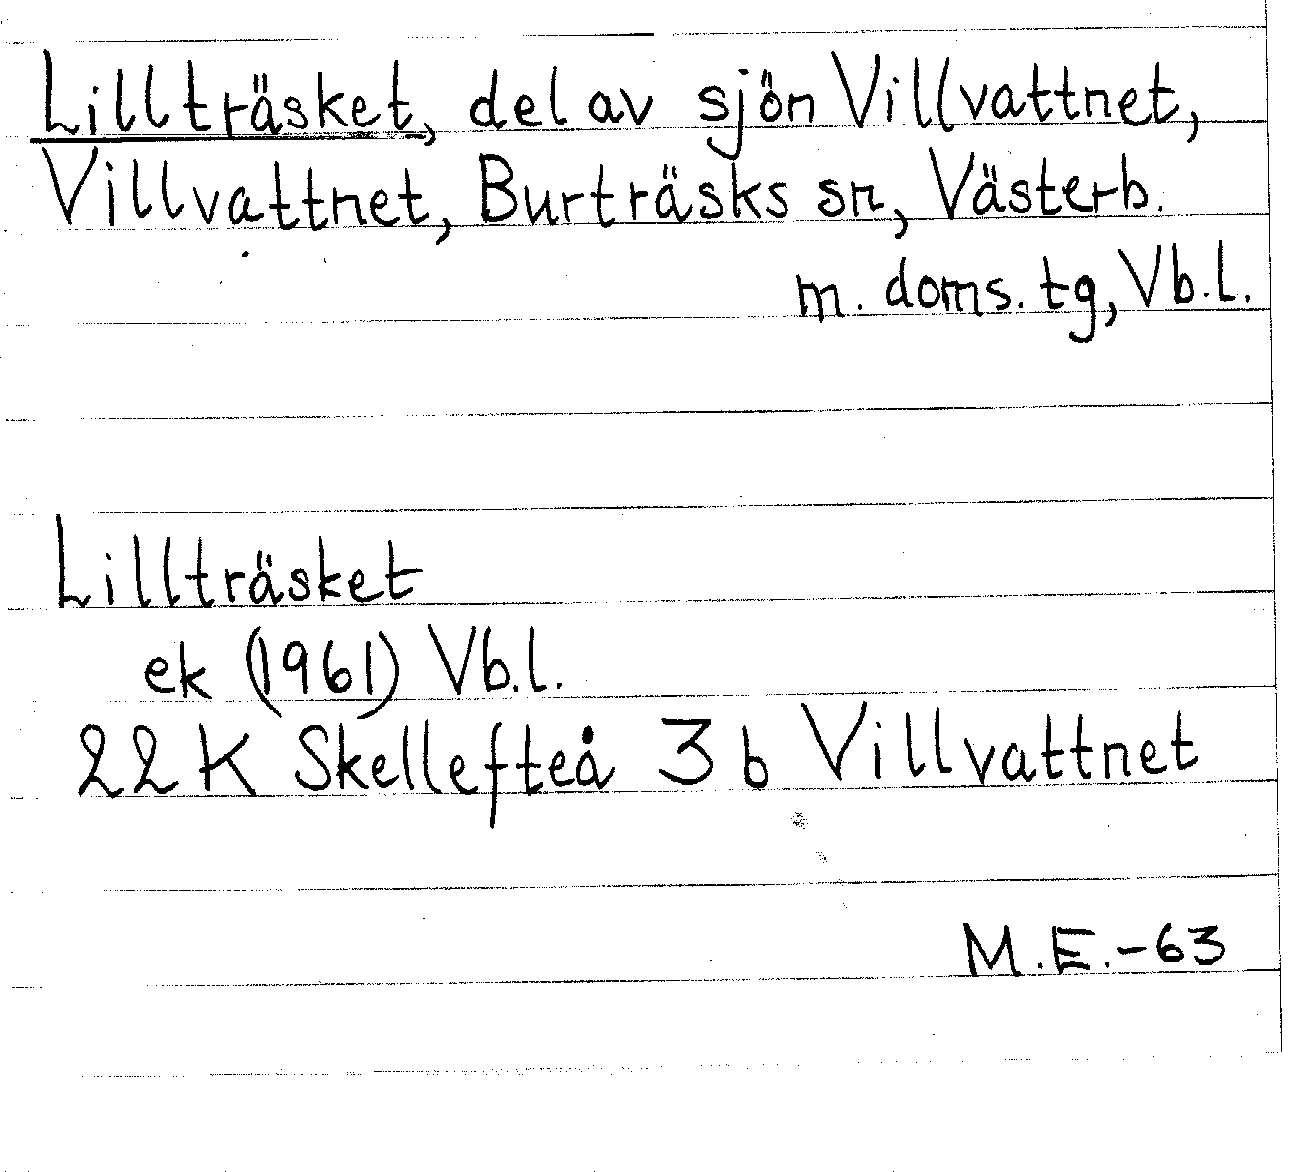 Lillträsket, del av sjön Villvattnet,
Villvattnet, Burträsks sn, Västerb.
m. doms. tg, Vb.l.
Lillträsket
ek (1961) Vb.l.
22 K Skellefteå 3 b Villvattnet
M.E.-63